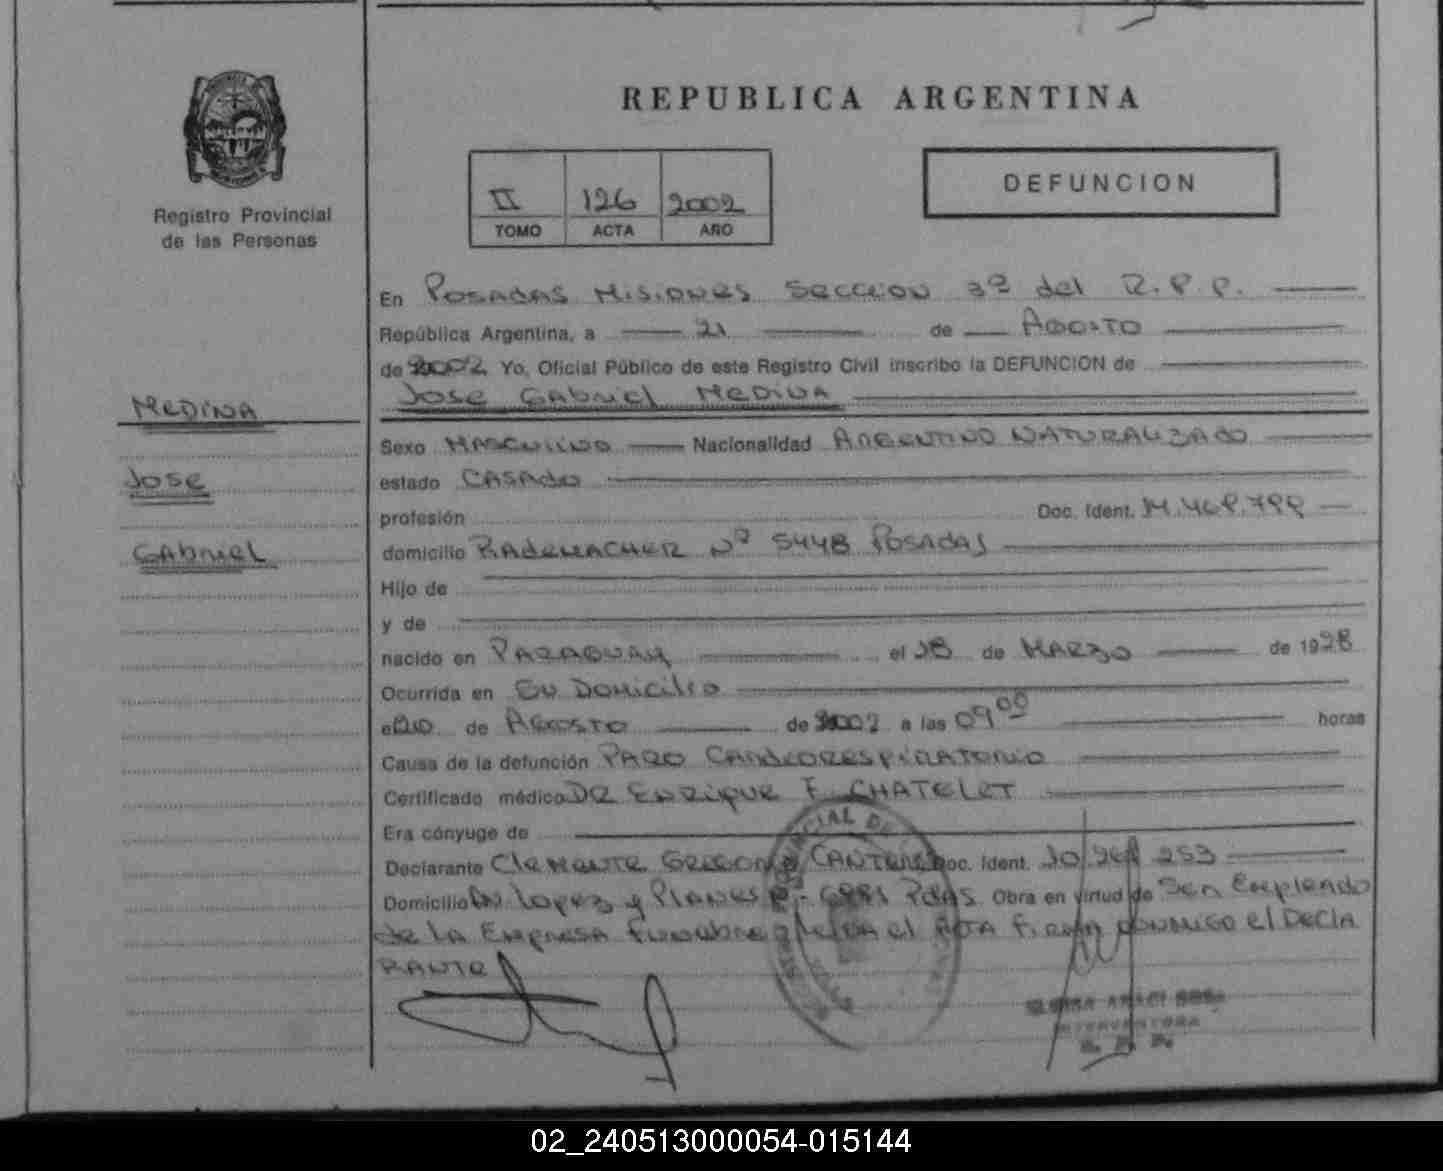 REPUBLICA ARGENTINA
Registro Provincial
de las Personas
II 126 2002
TOMO ACTA AÑO
DEFUNCION
MEDINA
JOSE
GABRIEL
En POSADAS MISIONES SECCION 3ª del R.P.P.
República Argentina, a 21 de AGOSTO
de 2002 Yo, Oficial Público de este Registro Civil inscribo la DEFUNCION de
JOSE GABRIEL MEDINA
Sexo MASCULINO Nacionalidad ARGENTINO NATURALIZADO
estado CASADO
profesión Doc. Ident. M.
domicilio RADEMACHER Nº 5448 POSADAS
Hijo de
y de
nacido en PARAGUAY el de MARZO de 1928
Ocurrida en SU DOMICILIO
el 20 de AGOSTO de 2002 a las 09 00 horas
Causa de la defunción PARO CARDIORESPIRATORIO
Certificado médico DR ENRIQUE F. CHATELET
Era cónyuge de
Declarante CLEMENTE Doc. Ident. 253
Domicilio AV. LOPEZ y PLANES Pdas. Obra en virtud de Ser Empleado
de la Empresa Funebre leida el ACTA firma CONMIGO el DECLA
RANTE
INTERVENTORA
02_240513000054-015144